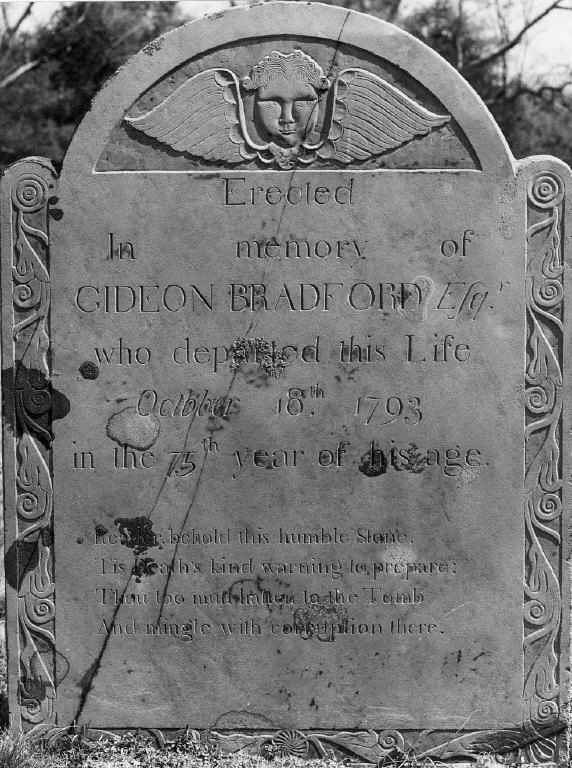 Erected
In memory of
GIDEON BRADFORD Eſqʳ
who departed this Life
October 18th. 1793
in the 75th year of his age.
Reader, behold this humble Stone,
Tis Death's kind warning to prepare;
Thou too muſt haſten to the Tomb
And mingle with corruption there.